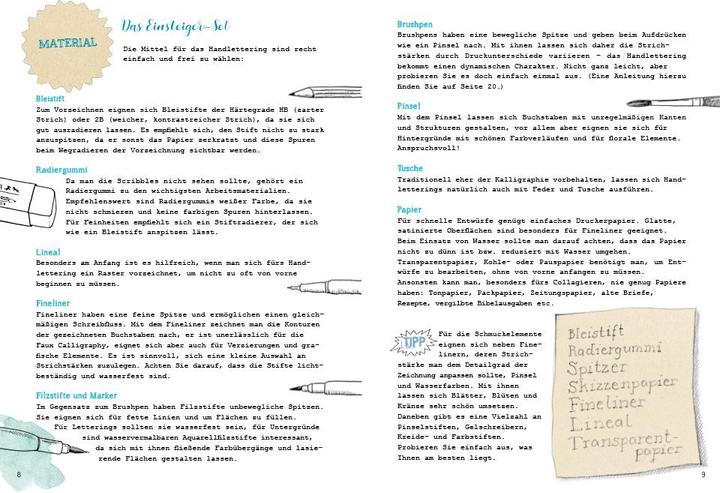 MATERIAL
Das Einsteiger-Set
Die Mittel für das Handlettering sind recht
einfach und frei zu wählen:
Bleistift
Zum Vorzeichnen eignen sich Bleistifte der Härtegrade HB (zarter
Strich) oder 2B (weicher, kontrastreicher Strich), da sie sich
gut ausradieren lassen. Es empfiehlt sich, den Stift nicht zu stark
anzuspitzen, da er sonst das Papier zerkratzt und diese Spuren
beim Wegradieren der Vorzeichnung sichtbar werden.
Radiergummi
Da man die Scribbles nicht sehen sollte, gehört ein
Radiergummi zu den wichtigsten Arbeitsmaterialien.
Empfehlenswert sind Radiergummis weißer Farbe, da sie
nicht schmieren und keine farbigen Spuren hinterlassen.
Für Feinheiten empfiehlt sich ein Stiftradierer, der sich
wie ein Bleistift anspitzen lässt.
Lineal
Besonders am Anfang ist es hilfreich, wenn man sich fürs Hand-
lettering ein Raster vorzeichnet, um nicht zu oft von vorne
beginnen zu müssen.
Fineliner
Fineliner haben eine feine Spitze und ermöglichen einen gleich-
mäßigen Schreibfluss. Mit dem Fineliner zeichnet man die Konturen
der gezeichneten Buchstaben nach, er ist unerlässlich für die
Faux Calligraphy, eignet sich aber auch für Verzierungen und gra-
fische Elemente. Es ist sinnvoll, sich eine kleine Auswahl an
Strichstärken zuzulegen. Achten Sie darauf, dass die Stifte licht-
beständig und wasserfest sind.
Filzstifte und Marker
Im Gegensatz zum Brushpen haben Filzstifte unbewegliche Spitzen.
Sie eignen sich für fette Linien und um Flächen zu füllen.
Für Letterings sollten sie wasserfest sein, für Untergründe
sind wasservermalbaren Aquarellfilzstifte interessant,
da sich mit ihnen fließende Farbübergänge und lasie-
rende Flächen gestalten lassen.
8
Brushpen
Brushpens haben eine bewegliche Spitze und geben beim Aufdrücken
wie ein Pinsel nach. Mit ihnen lassen sich daher die Strich-
stärken durch Druckunterschiede variieren – das Handlettering
bekommt einen dynamischen Charakter. Nicht ganz leicht, aber
probieren Sie es doch einfach einmal aus. (Eine Anleitung hierzu
finden Sie auf Seite 20.)
Pinsel
Mit dem Pinsel lassen sich Buchstaben mit unregelmäßigen Kanten
und Strukturen gestalten, vor allem aber eignen sie sich für
Hintergründe mit schönen Farbverläufen und für florale Elemente.
Anspruchsvoll!
Tusche
Traditionell eher der Kalligraphie vorbehalten, lassen sich Hand-
letterings natürlich auch mit Feder und Tusche ausführen.
Papier
Für schnelle Entwürfe genügt einfaches Druckerpapier. Glatte,
satinierte Oberflächen sind besonders für Fineliner geeignet.
Beim Einsatz von Wasser sollte man darauf achten, dass das Papier
nicht zu dünn ist bzw. reduziert mit Wasser umgehen.
Transparentpapier, Kohle- oder Pauspapier benötigt man, um Ent-
würfe zu bearbeiten, ohne von vorne anfangen zu müssen.
Ansonsten kann man, besonders fürs Collagieren, nie genug Papiere
haben: Tonpapier, Packpapier, Zeitungspapier, alte Briefe,
Rezepte, vergilbte Bibelausgaben etc.
TIPP
Für die Schmuckelemente
eignen sich neben Fine-
linern, deren Strich-
stärke man dem Detailgrad der
Zeichnung anpassen sollte, Pinsel
und Wasserfarben. Mit ihnen
lassen sich Blätter, Blüten und
Kränze sehr schön umsetzen.
Daneben gibt es eine Vielzahl an
Pinselstiften, Gelschreibern,
Kreide- und Farbstiften.
Probieren Sie einfach aus, was
Ihnen am besten liegt.
Bleistift
Radiergummi
Spitzer
Skizzenpapier
Fineliner
Lineal
Transparent-
papier
9